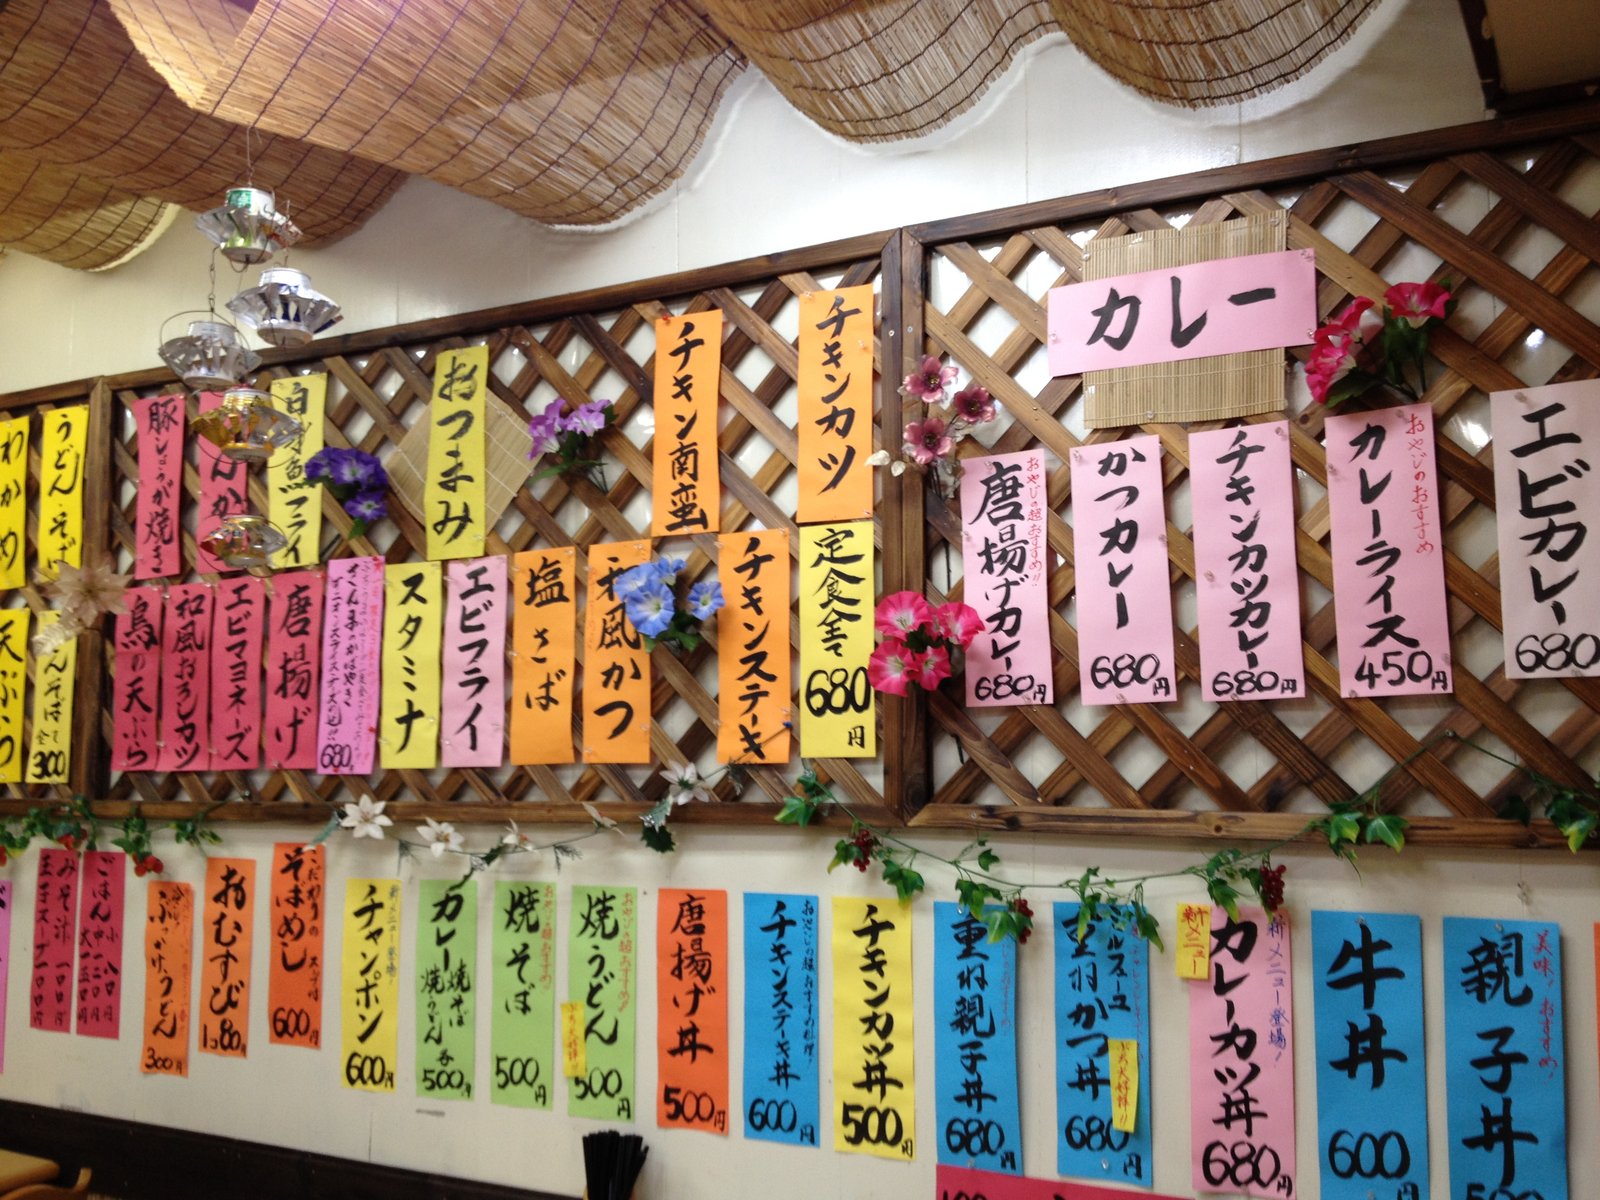 カレー
エビカレー
680
おやじのおすすめ
カレーライス
450円
チキンカツカレー
680円
かつカレー
680円
おやじの超おすすめ!!
唐揚げカレー
680円
チキンカツ
定食全て
680円
チキン南蛮
チキンステーキ
おつまみ
和風かつ
塩さば
エビフライ
スタミナ
さんまのかばやき
680
白身魚フライ
豚しょうが焼き
唐揚げ
エビマヨネーズ
和風おろしカツ
鳥の天ぷら
うどん・そば
わかめ
全て
300
天ぷら
美味!おすすめ!
親子丼
牛丼
600
新メニュー
新メニュー登場!
カレーカツ丼
680円
重羽かつ丼
680円
重ね親子丼
680円
チキンカツ丼
500円
おやじの超おすすめ料理!
チキンステーキ丼
600円
唐揚げ丼
500円
おやじの超おすすめ!!
焼うどん
500円
おやじの超おすすめ
焼そば
500円
カレー
焼そば
焼うどん
各
500円
新メニュー登場!
チャンポン
600円
そばめし
600円
おむすび
1コ80円
ぶっかけうどん
300円
ごはん小 八〇円
中 一二〇円
大 一五〇円
みそ汁 一〇〇円
玉子スープ 一〇〇円